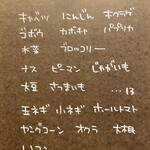 キャベツ にんじん キクラゲ
ゴボウ カボチャ パプリカ
水菜 ブロッコリー
ナス ピーマン じゃがいも
大豆 さつまいも …13
玉ネギ 小ネギ ホールトマト
ヤングコーン オクラ 大根